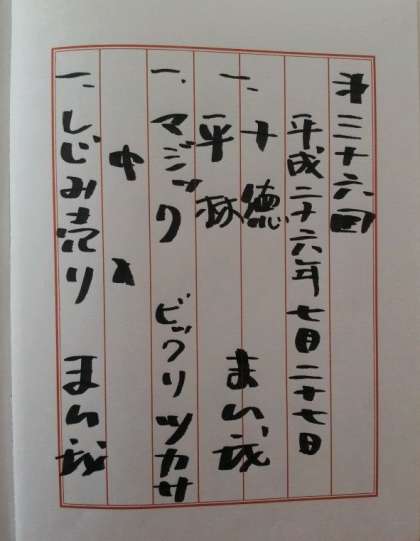 㐧三十六回
平成二十六年 七月二十七日
一、十徳
平林 まん我
一、マジック ビックリツカサ
中入
一、しじみ売り まん我